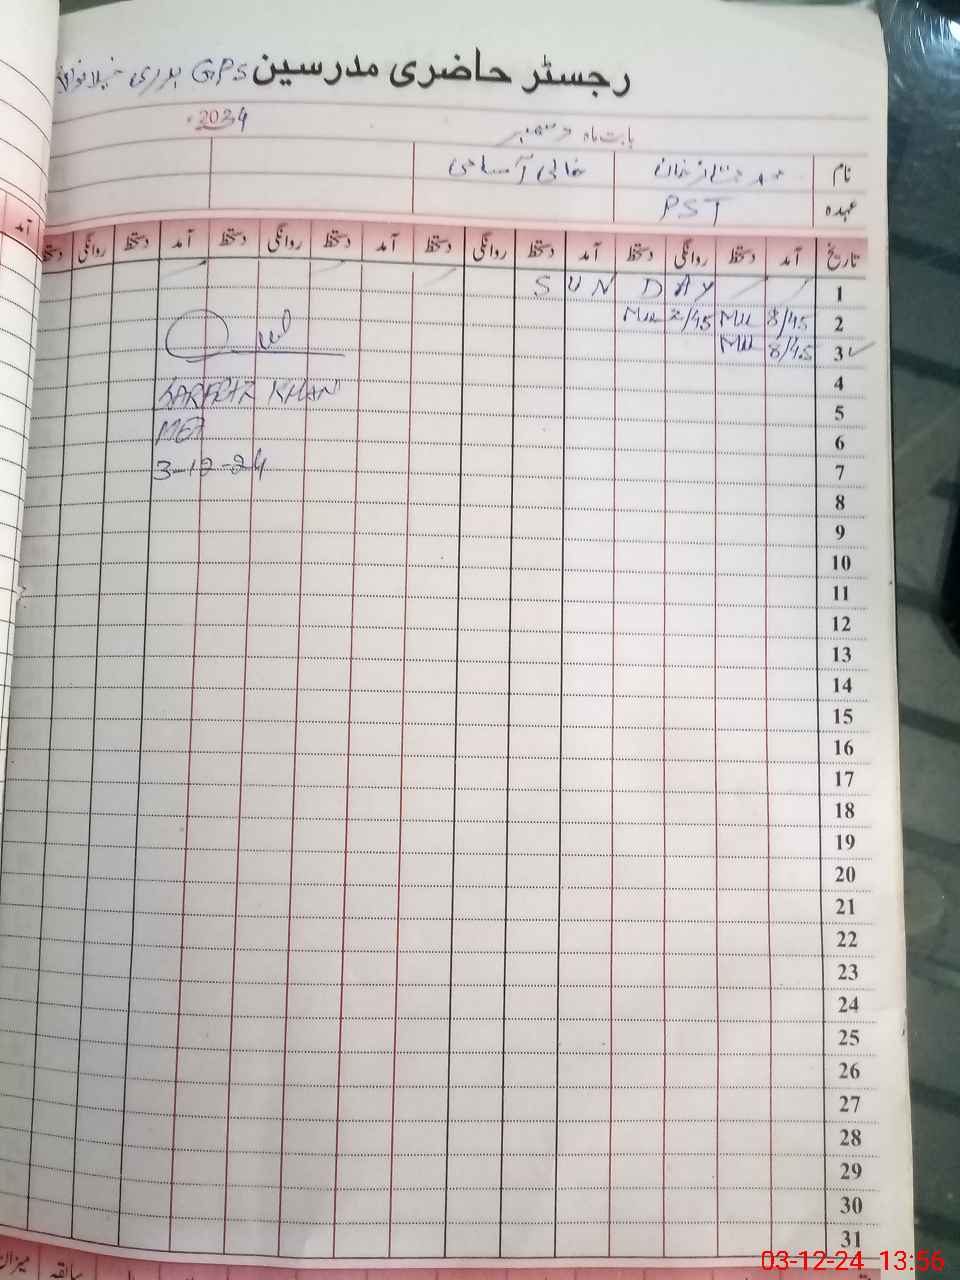 رجسٹر حاضری مدرسین GPS
بابت ماہ دسمبر 2024
نام خان خالی آسامی
عہدہ PST
تاریخ آمد دستخط روانگی دستخط آمد دستخط روانگی دستخط آمد دستخط روانگی دستخط آمد دستخط روانگی دستخط
آمد
1 SUN DAY
2 8/45 MU 2/45 MU
3 8/45 MU
4
SARFRAZ KHAN
5
6
3-12-24
7
8
9
10
11
12
13
14
15
16
17
18
19
20
21
22
23
24
25
26
27
28
29
30
31
سابقہ
میزان
03-12-24 13:56